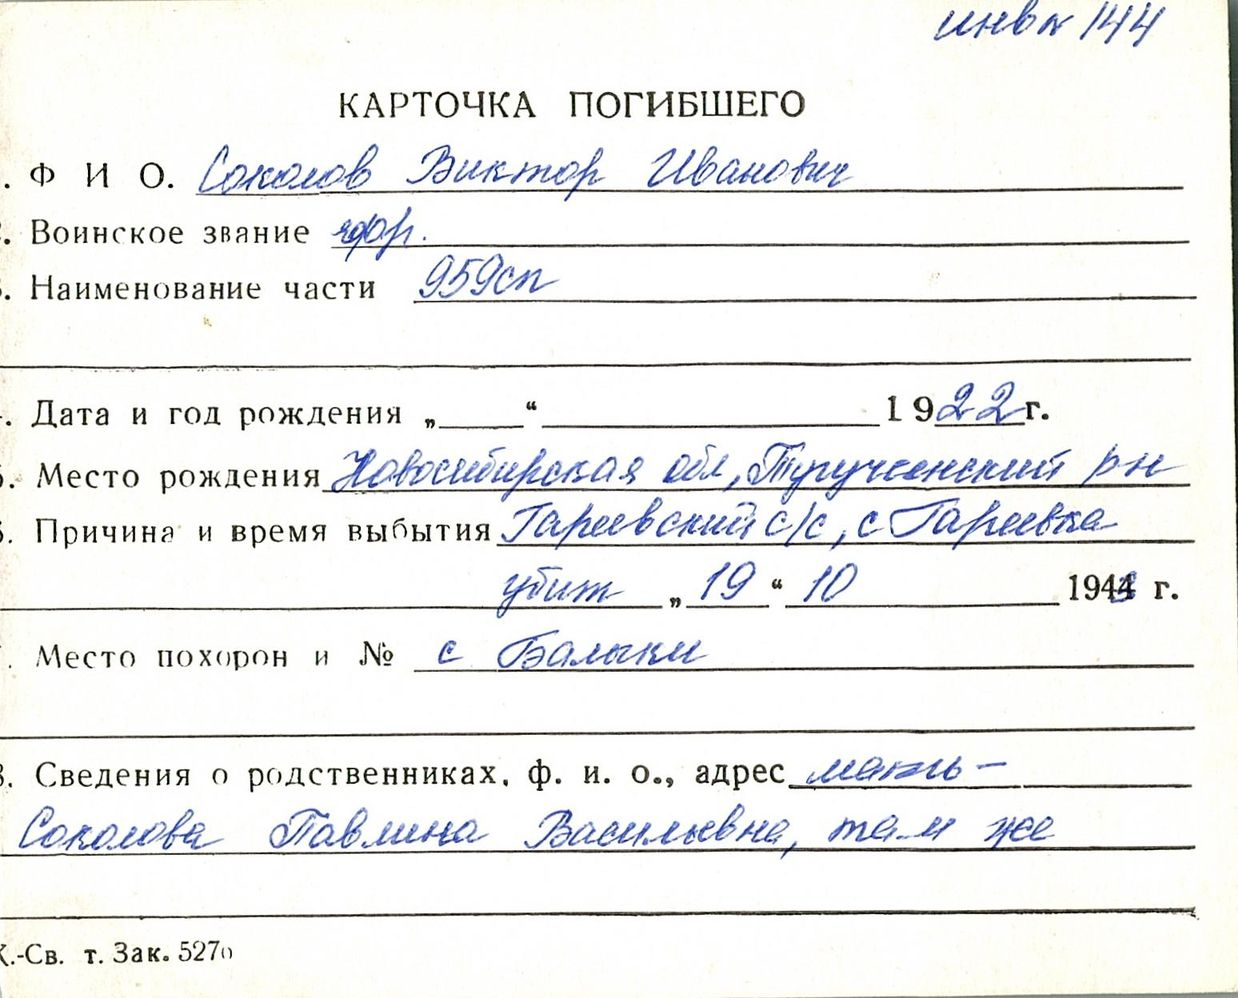 инв № 144
КАРТОЧКА ПОГИБШЕГО
. Ф И О. Соколов Виктор Иванович
. Воинское звание ефр.
. Наименование части 959сп
. Дата и год рождения „ “ 1922г.
. Место рождения Новосибирская обл, рн
. Причина и время выбытия с/с, с
убит „19“ 10 1943 г.
. Место похорон и № с Балыки
. Сведения о родственниках, ф. и. о., адрес мать –
Соколова Павлина Васильевна, там же
.-Св. т. Зак. 527о